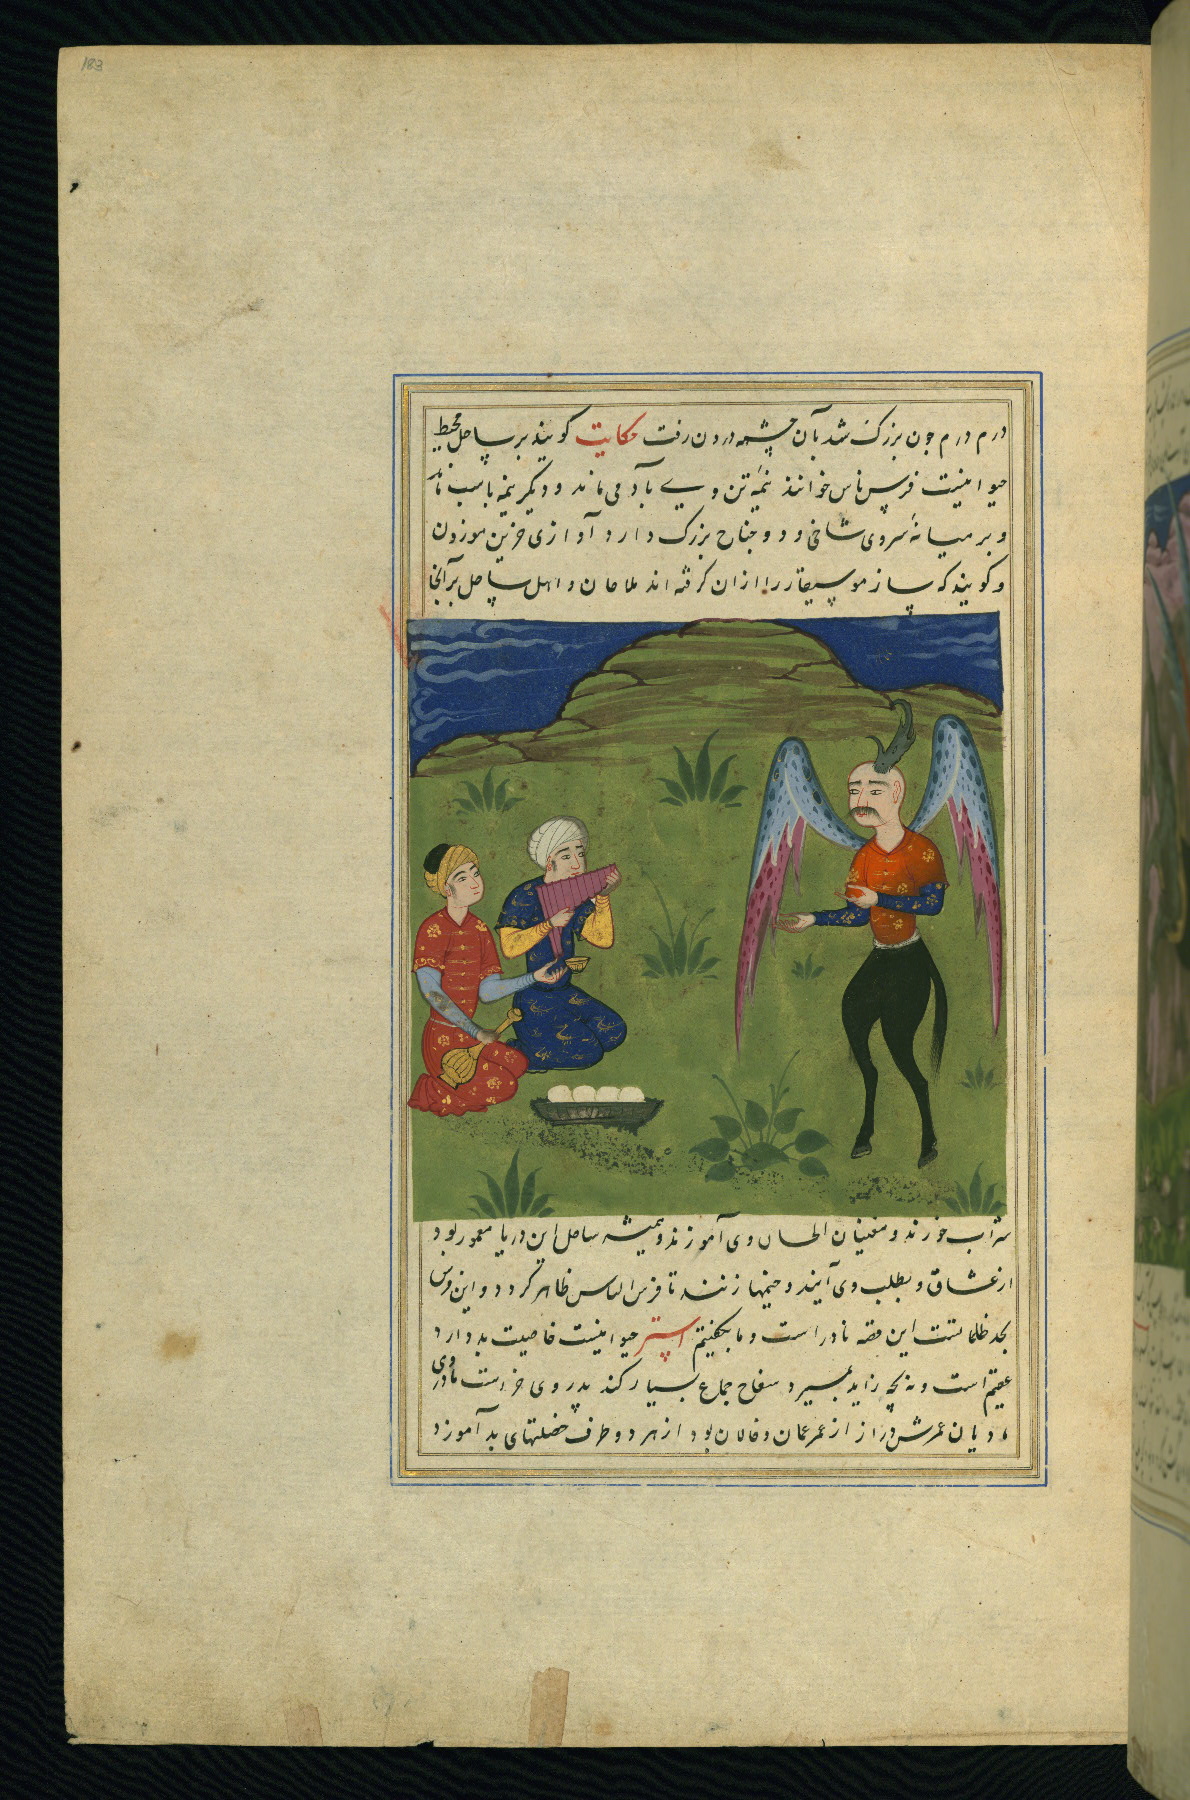 183
درم درم چون بزرک شد بآن چشمه درون رفت حکایت کویند بر ساحل محیط
حیوانیست فرس ناس خوانند نیمهٔ تن وی بآدمی ماند و دیکر نیمه باسب ماند
و بر میانهٔ سروی شاخی و دو جناح بزرک دارد آوازی حزین موزون
و کویند که ساز موسیقار را ازان کرفته اند ملاحان و اهل ساحل بر آنجا
شراب خورند و مغنیان الحان وی آموزند و همیشه ساحل این دریا معمور بود
از عشاق و بطلب وی آیند و خیمها زنند تا فرس الناس ظاهر کردد و این فرس
بحد ظلماتست این قصه نادر است و ما بکفتیم استر حیوانیست خاصیت بد دارد
عقیم است و نه بچه زاید بمیرد سفاح جماع بسیار کند پدر وی خرست مادر وی
مادیان عمرش دراز از عمر و فالان بود از هر دو طرف خصلتهای بد آموزد